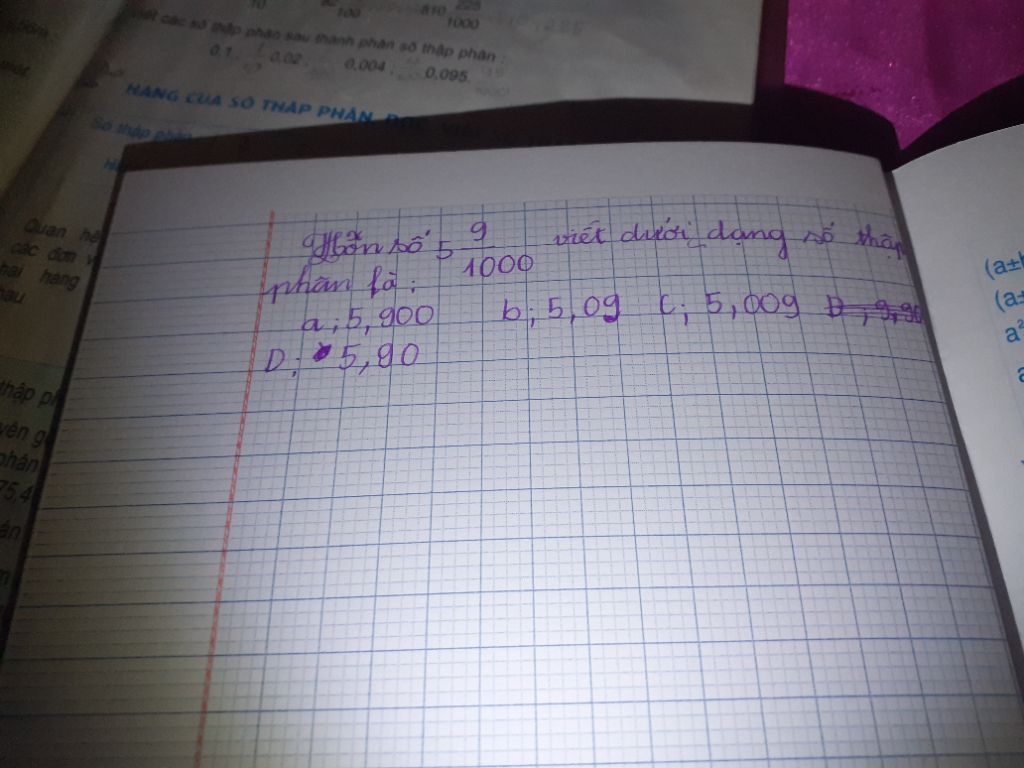 10
100
810 225/1000
viết các số thập phân sau thành phân số thập phân :
0,1 0,02 0,004 0,095
HÀNG CỦA SỐ THẬP PHÂN. ĐỌC, VIẾT
Số thập phân
Quan hệ
các đơn v
hai hàng
hau
Hỗn số 5 9/1000 viết dưới dạng số thập
phân là :
a ; 5,900 b ; 5,09 c ; 5,009
D ; 5,90
thập ph
phân
75,4
(a±
(a±
a²